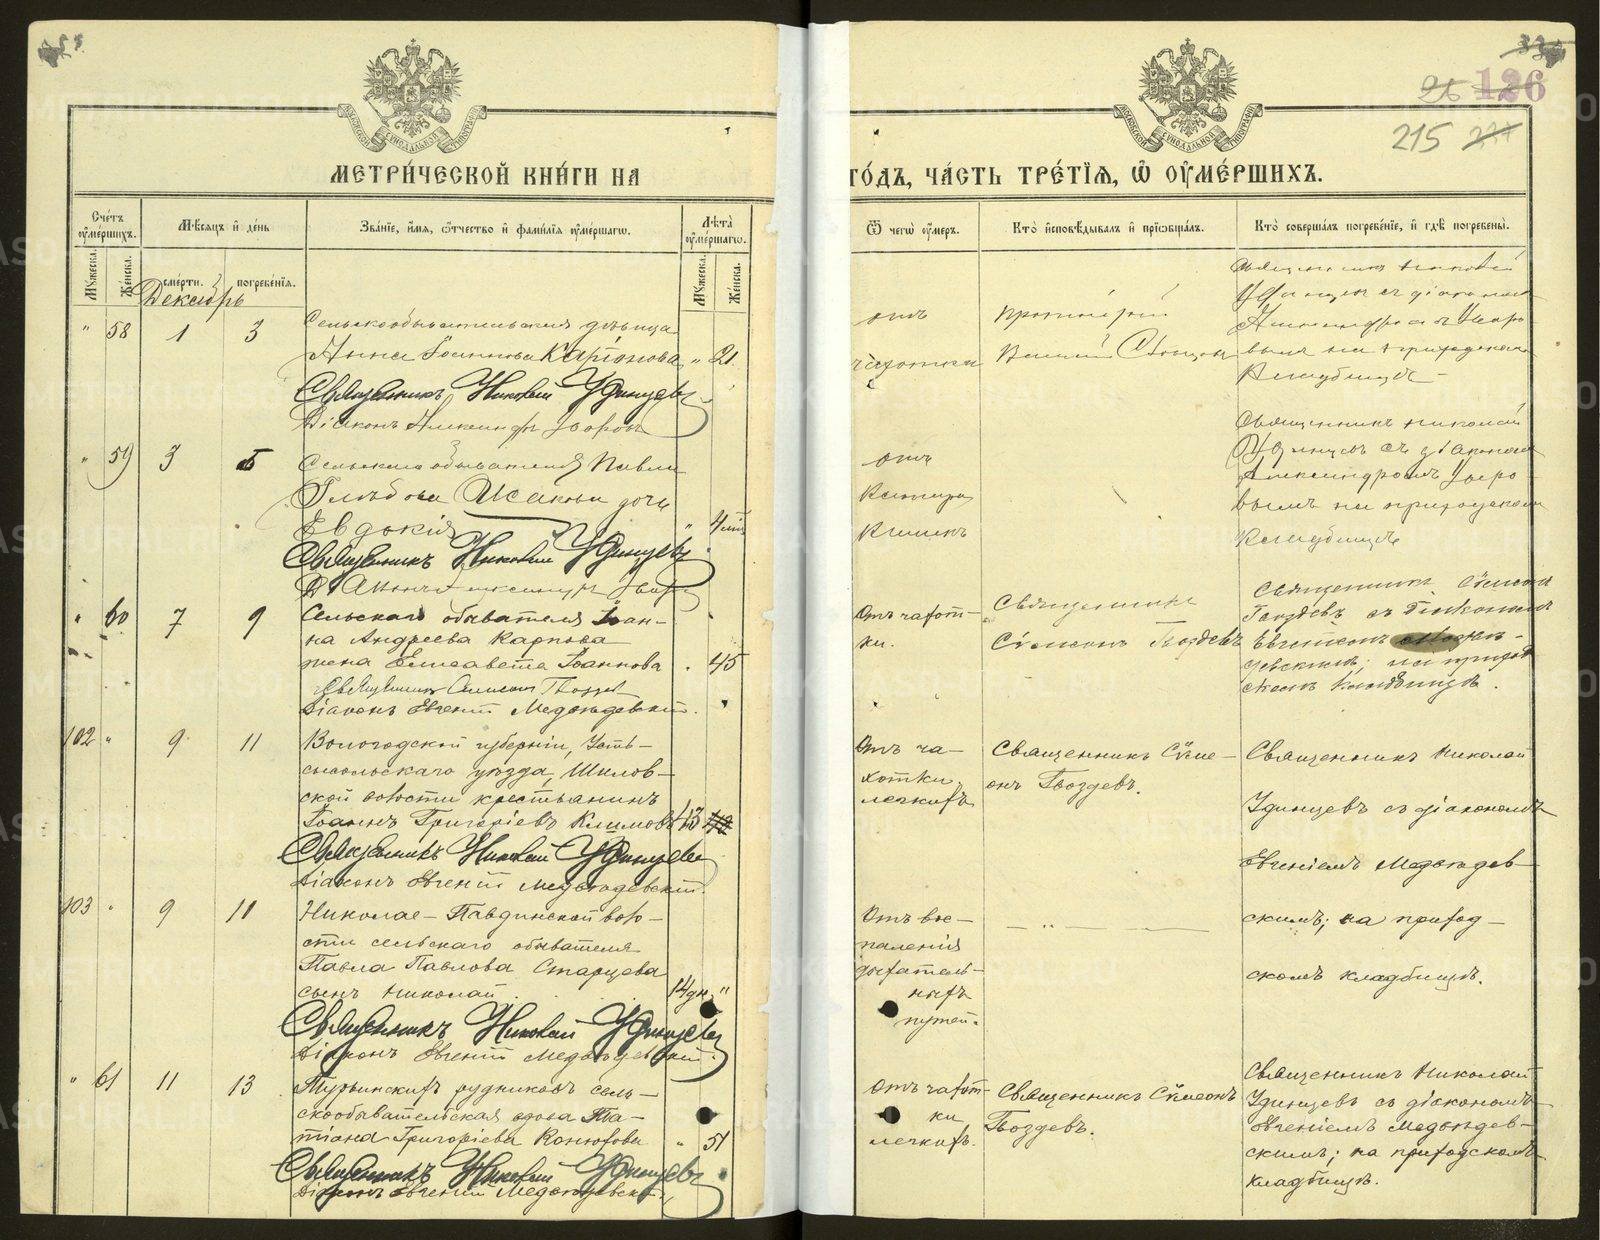 126
215
МЕТРИ́ЧЕСКОЙ КНИ́ГИ НА
ГО́ДЪ, ЧА́СТЬ ТРЕ́ТІѦ, Ѡ҆ ОУ҆МЕ́РШИХЪ.
Сче́тъ оу҆ме́ршихъ.
Мꙋжеска.
Же́нска.
Мѣ́сяцъ и҆ де́нь
сме́рти.
погребе́нія.
Зва́ніе, и҆́мя, ѻ҆́тчество и҆ фами́лія оу҆ме́ршагѡ.
Лѣ́та оу҆ме́ршагѡ.
Мꙋжеска.
Же́нска.
Ѿ чегѡ̀ оу҆́меръ.
Кто̀ и҆сповѣ́дывалъ и҆ прїѡбща́лъ.
Кто̀ соверша́лъ погребе́ніе, и҆ гдѣ̀ погребены̀.
Декабрь
" 58 1 3
Сельскообывательская дѣвица
Анна Іоаннова Карпова " 21
Священникъ Николай Удинцевъ
Діаконъ Александръ
отъ
чахотки
Протоіерей
Священникъ Николай
Удинцевъ съ діакономъ
на приходскомъ
Кладбищѣ
" 59 3 5
Сельскаго обывателя Павла
Глѣбова Исакова дочь
Евдокія " 4
Священникъ Николай Удинцевъ
Діаконъ Александръ
отъ
Кишекъ
Священникъ Николай
Удинцевъ съ діакономъ
Александромъ
вымъ на приходскомъ
Кладбищѣ
" 60 7 9
Сельскаго обывателя Іоан-
на Андреева Карпова
жена Елисавета Іоаннова " 45
Священникъ Симеонъ Гвоздевъ
Діаконъ Евгеній Медвѣдевскій.
Отъ чахот-
ки.
Священникъ
Сѵмеонъ Гвоздевъ
Священникъ Сѵмеонъ
Гвоздевъ съ Діакономъ
Евгеніемъ
девскимъ; на приход
скомъ кладбищѣ.
102 " 9 11
Вологодской губерніи, Усть-
сысольскаго уѣзда, Шилов-
ской волости крестьянинъ
Іоаннъ Григоріевъ Климовъ 43
Священникъ Николай Удинцевъ
Діаконъ Евгеній Медвѣдевскій.
Отъ ча-
хотки
легкихъ
Священникъ Сѵме-
онъ Гвоздевъ.
Священникъ Николай
Удинцевъ съ діакономъ
Евгеніемъ Медвѣдев-
скимъ; на приход-
скомъ кладбищѣ.
103 " 9 11
Николае-Павдинской воло-
сти сельскаго обывателя
Павла Павлова Старцева
сынъ Николай 14 дн. "
Священникъ Николай Удинцевъ
Діаконъ Евгеній Медвѣдевскій.
Отъ вос-
паленія
дыхатель-
ныхъ
путей.
" 61 11 13
Турьинскихъ рудниковъ сель-
скообывательская вдова Та-
тіана Григоріева Конюхова " 51
Священникъ Николай Удинцевъ
Діаконъ Евгеній Медвѣдевскій
Отъ чахот-
ки
легкихъ.
Священникъ Сѵмеонъ
Гвоздевъ.
Священникъ Николай
Удинцевъ съ діакономъ
Евгеніемъ Медвѣдев-
скимъ; на приходскомъ
кладбищѣ.